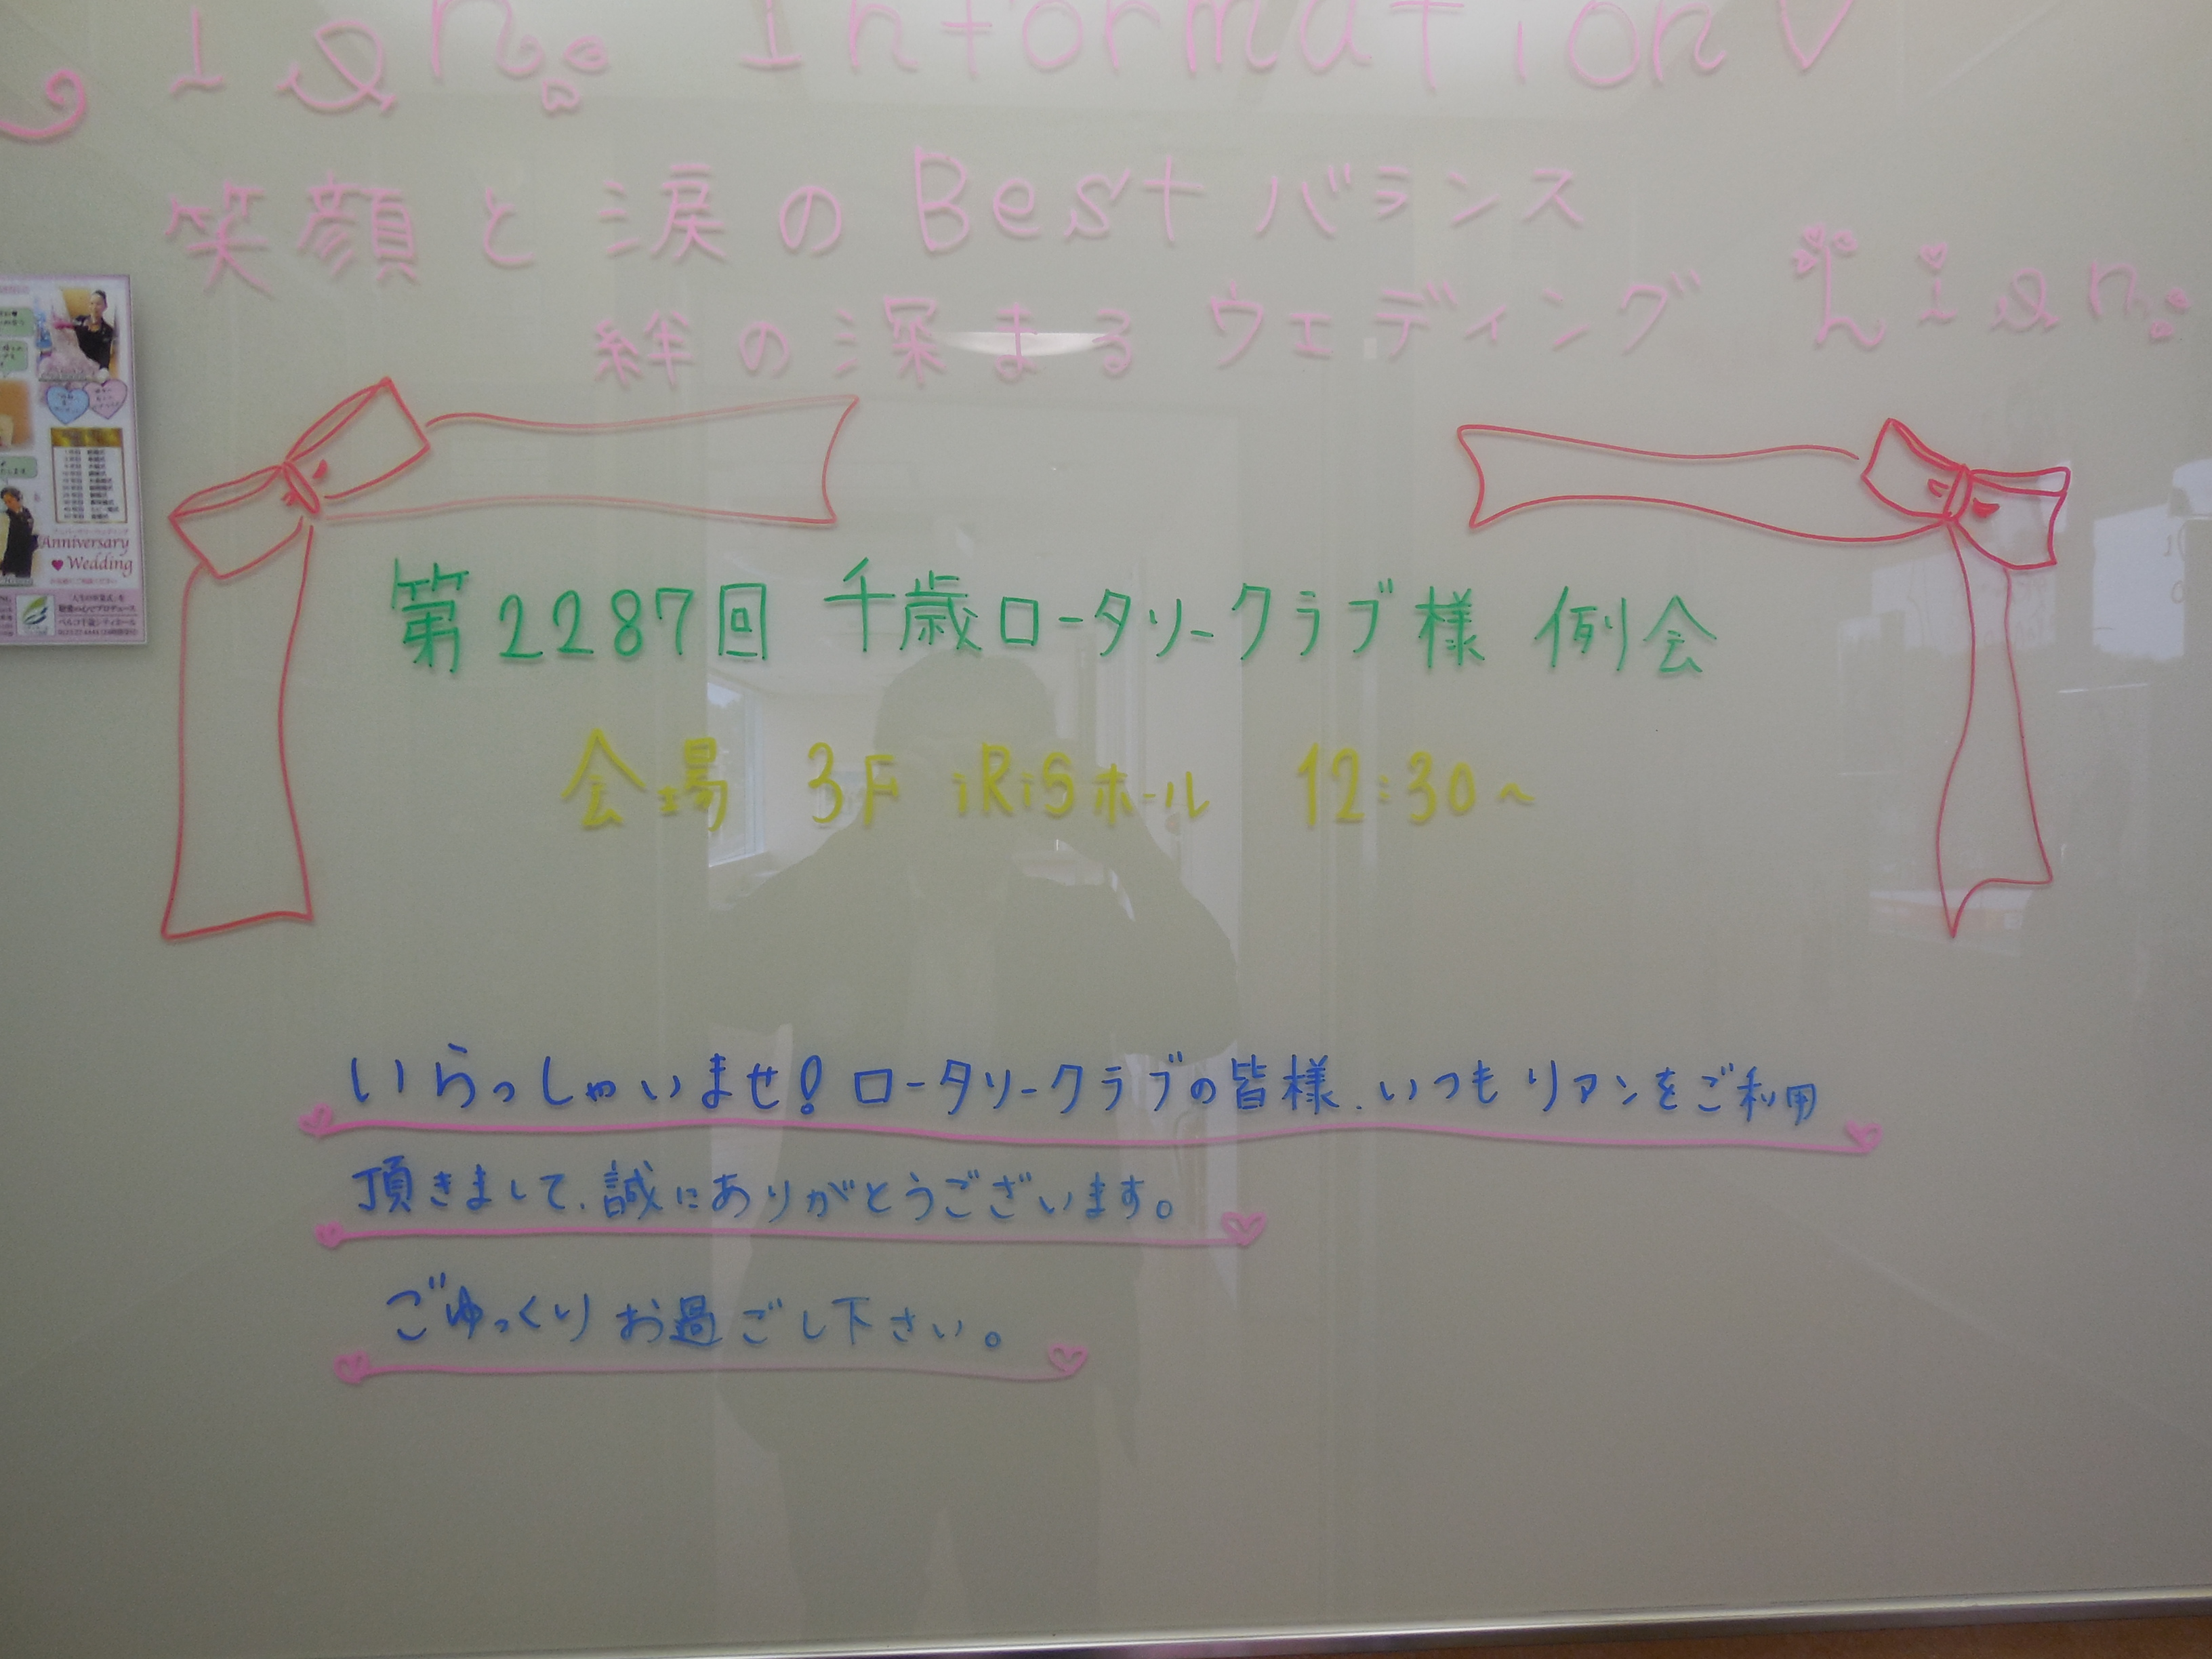 Lien Information
笑顔と涙のBestバランス
絆の深まるウェディング Lien
第2287回 千歳ロータリークラブ様 例会
会場 3F iRiSホール 12:30~
いらっしゃいませ!ロータリークラブの皆様、いつもリアンをご利用
頂きまして、誠にありがとうございます。
ごゆっくりお過ごし下さい。
Anniversary
Wedding
「人生の卒業式」を
ベルコ千歳シティホール